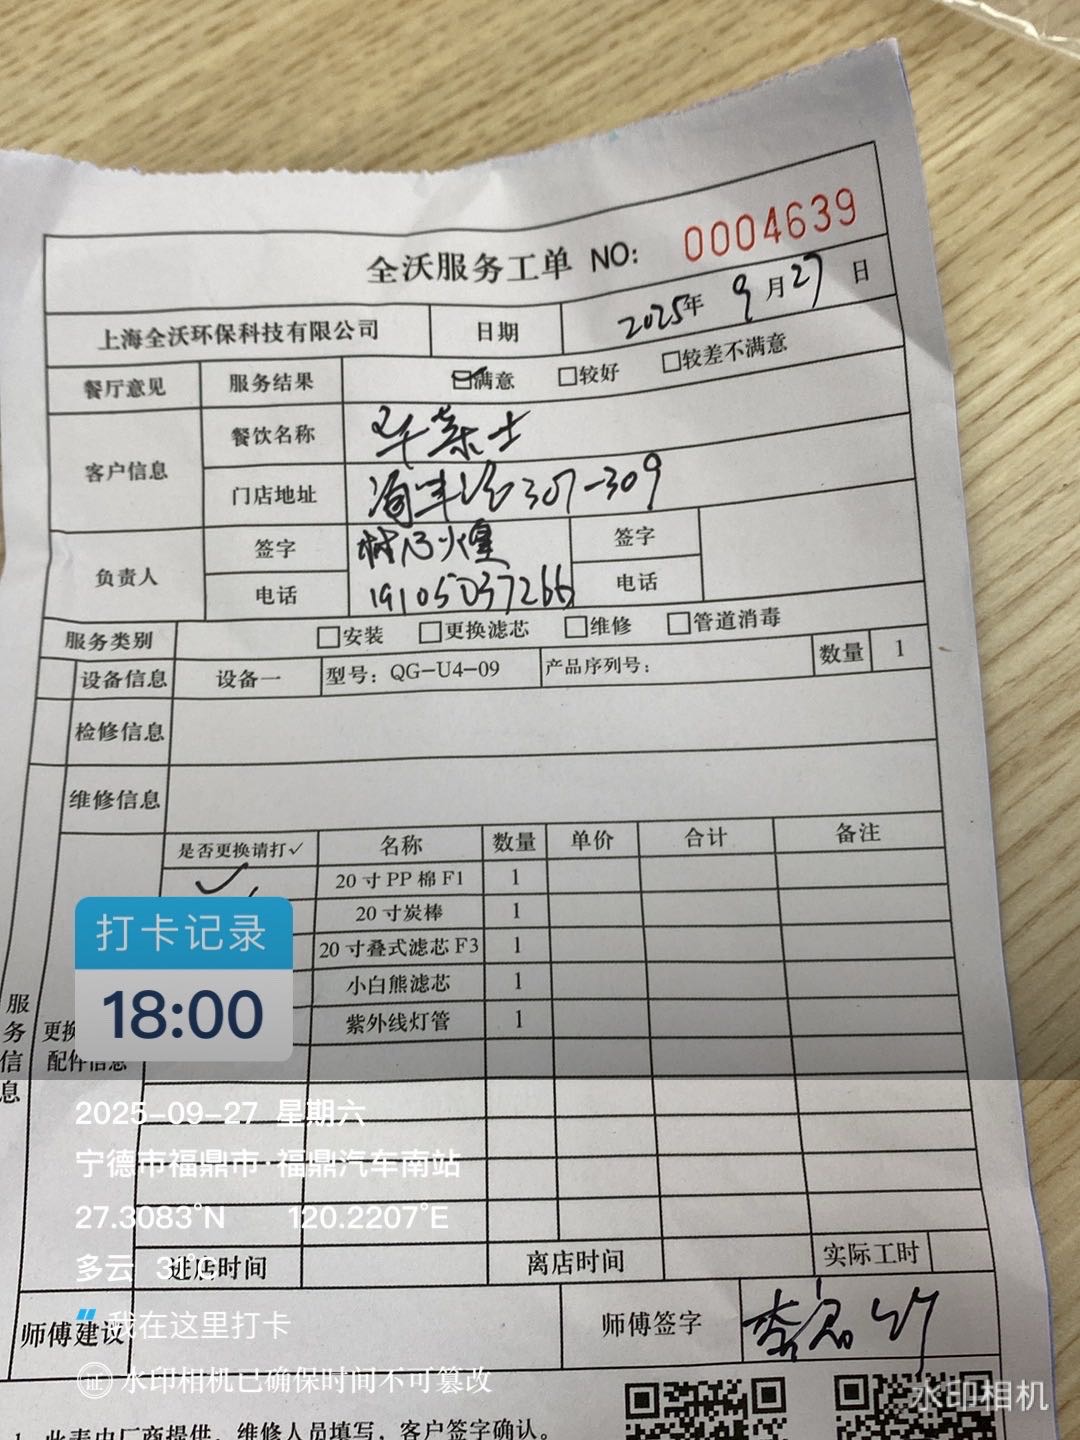 全沃服务工单 NO: 0004639
上海全沃环保科技有限公司 日期 2025年 9月27日
餐厅意见 服务结果 满意 较好 较差不满意
客户信息 餐饮名称
门店地址 307-309
负责人 签字 签字
电话 19105037266 电话
服务类别 安装 更换滤芯 维修 管道消毒
设备信息 设备一 型号：QG-U4-09 产品序列号： 数量 1
检修信息
维修信息
是否更换请打✓ 名称 数量 单价 合计 备注
✓ 20寸PP棉F1 1
20寸炭棒 1
20寸叠式滤芯F3 1
小白熊滤芯 1
紫外线灯管 1
服务信息
更换
配件信息
打卡记录
18:00
2025-09-27 星期六
宁德市福鼎市·福鼎汽车南站
27.3083°N 120.2207°E
多云
进店时间 离店时间 实际工时
师傅建议 师傅签字
我在这里打卡
证 水印相机已确保时间不可篡改
水印相机
1、此表由厂商提供，维修人员填写，客户签字确认。